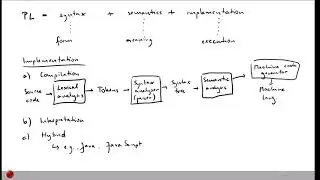 PL = syntax + semantics + implementation
form meaning execution
Implementation
a) Compilation
Source code → Lexical analysis → Tokens → Syntax analyzer (parser) → Syntax tree → Semantic analysis → Machine code generator → Machine lang.
b) Interpretation
c) Hybrid
↳ e.g., Java, JavaScript